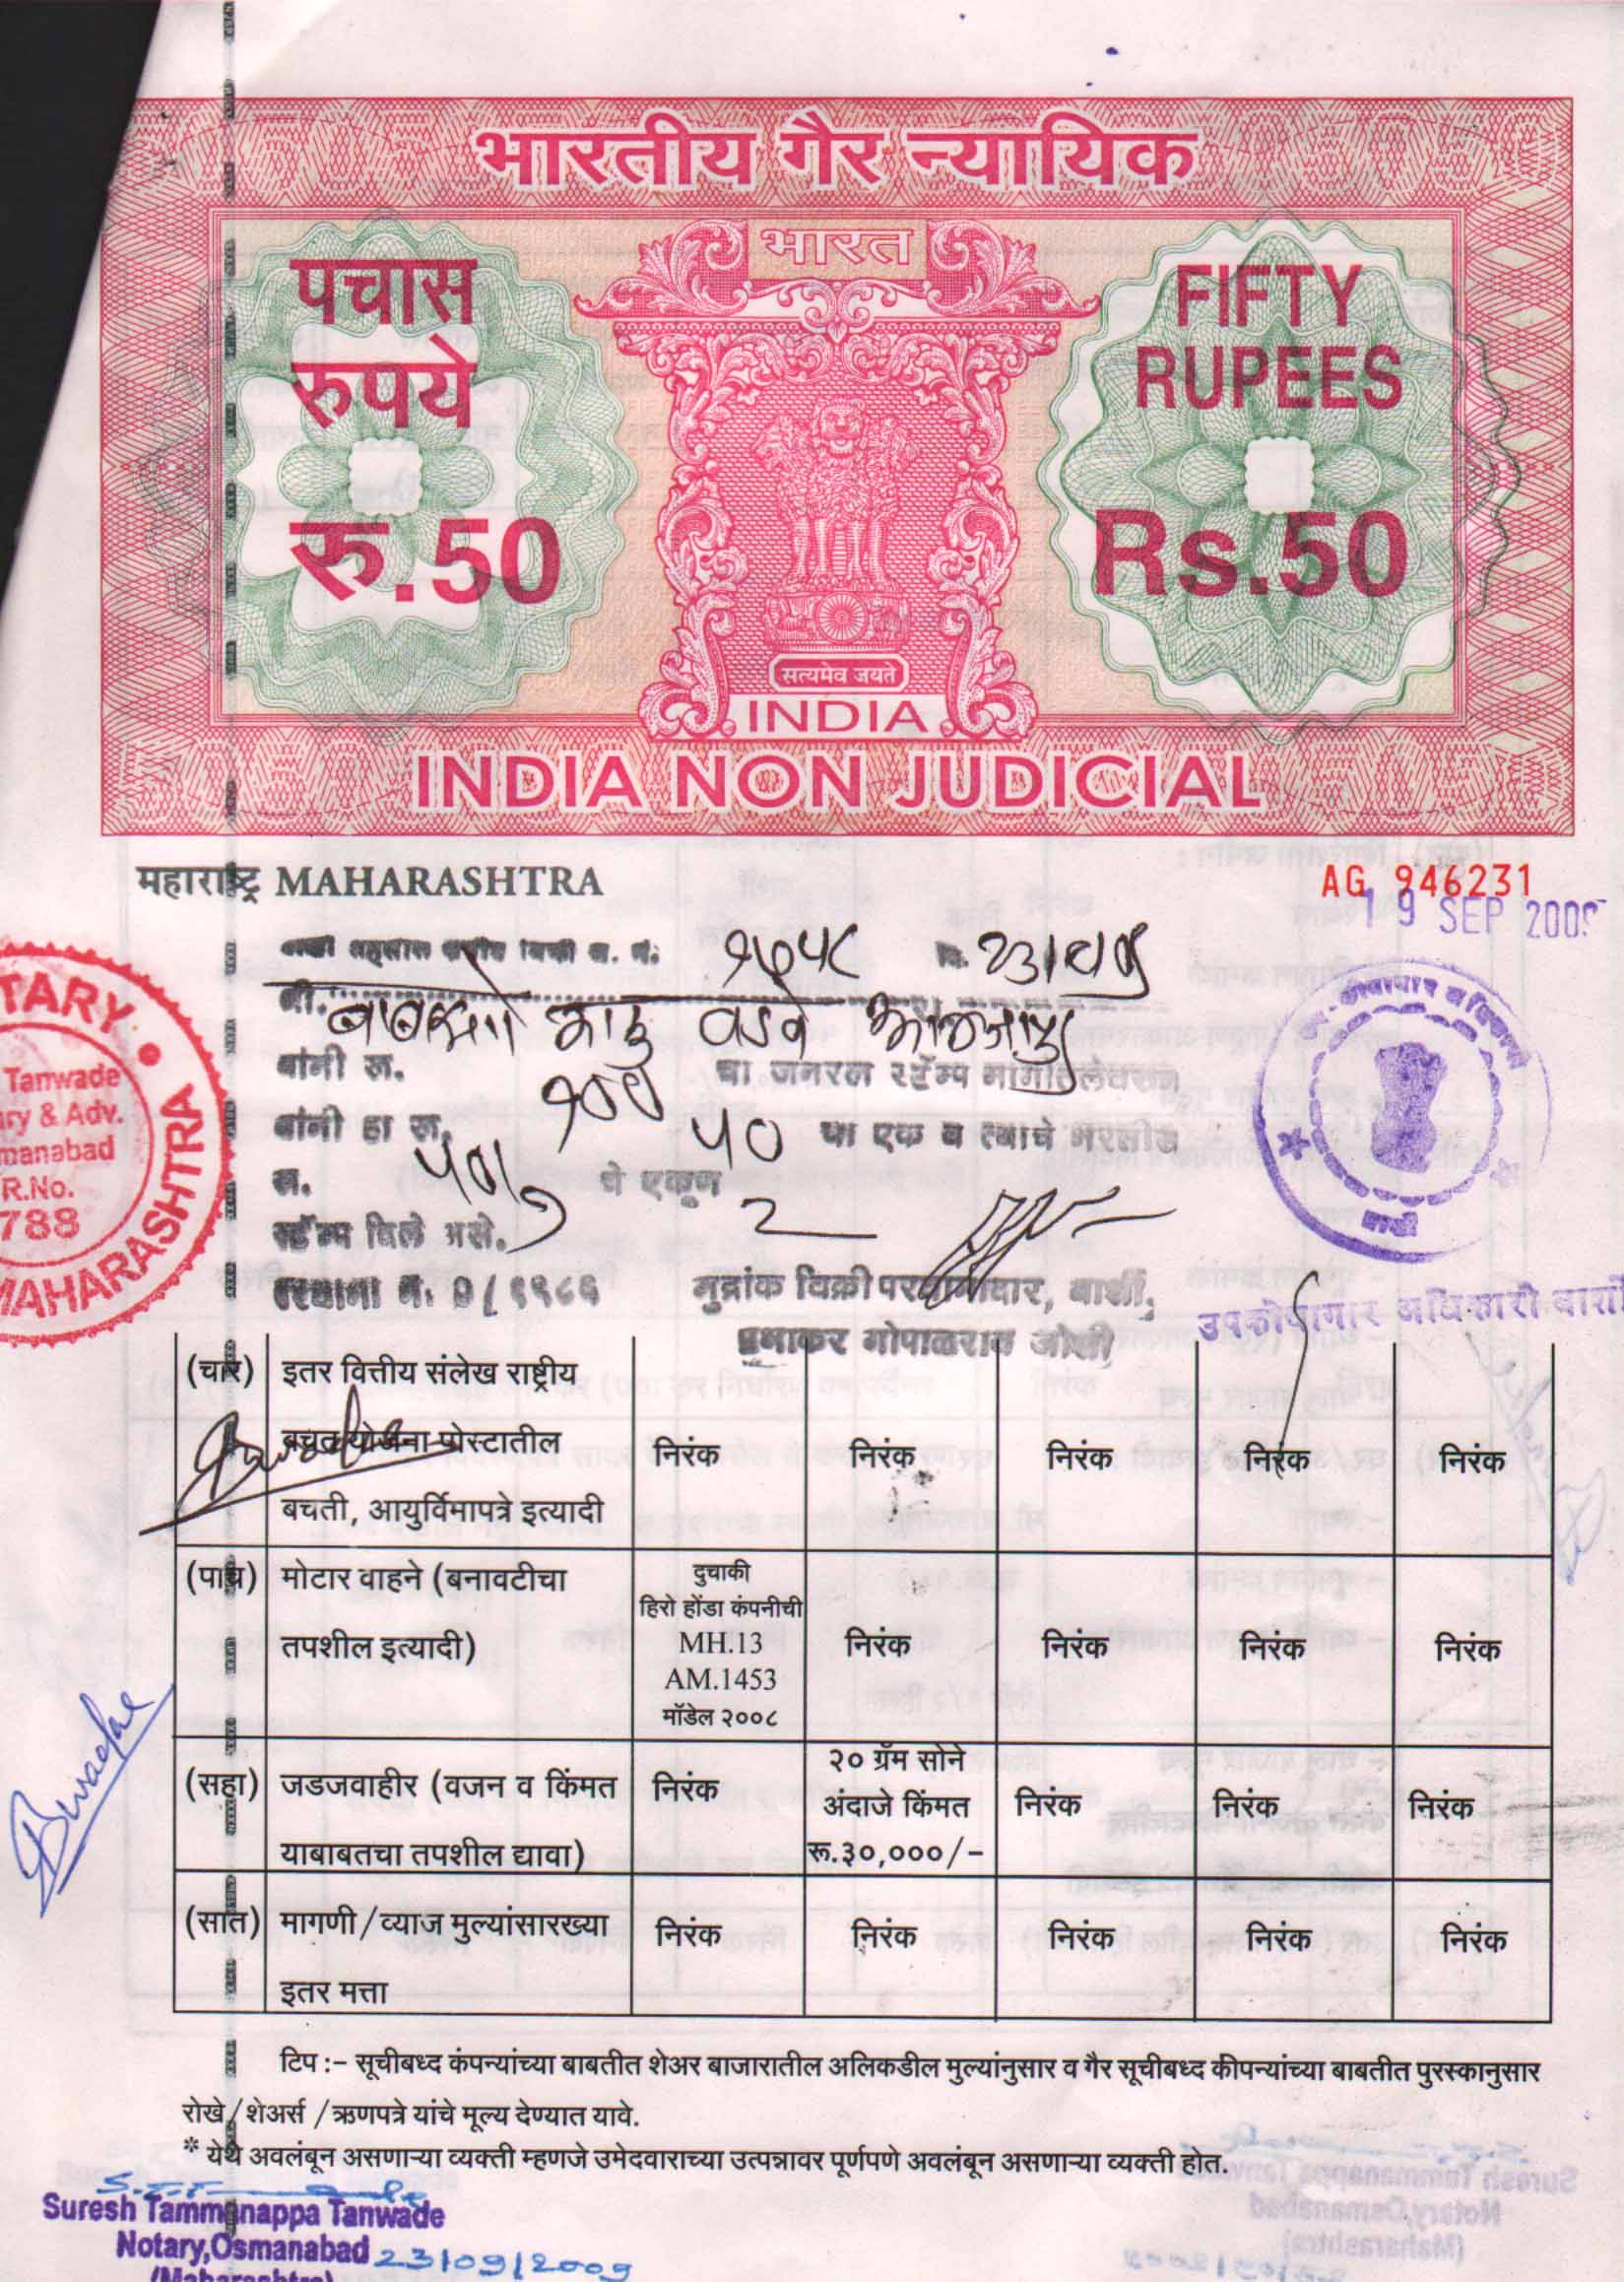 भारतीय गैर न्यायिक
भारत
पचास
रुपये
रु.50
FIFTY
RUPEES
Rs.50
सत्यमेव जयते
INDIA
INDIA NON JUDICIAL
महाराष्ट्र MAHARASHTRA
AG 946231
19 SEP 200
श्री.
यांनी रू. १०० चा जनरल स्टॅम्प
यांनी हा रू. ५० चा एक व त्याचे
चे एकूण 2
स्टॅम्प दिले असे.
मुद्रांक विक्री परवानादार, बार्शी.
प्रभाकर गोपाळराव जोशी
उपकोषागार अधिकारी बार्शी
TARY
Tanwade
ry & Adv.
manabad
R.No.
788
MAHARASHTRA
(चार) इतर वित्तीय संलेख राष्ट्रीय
बचत योजना पोस्टातील निरंक निरंक निरंक निरंक निरंक
बचती, आयुर्विमापत्रे इत्यादी
(पाच) मोटार वाहने (बनावटीचा
तपशील इत्यादी)
दुचाकी
हिरो होंडा कंपनीची
MH.13
AM.1453
मॉडेल २००८
निरंक निरंक निरंक निरंक
(सहा) जडजवाहीर (वजन व किंमत
याबाबतचा तपशील द्यावा)
निरंक
२० ग्रॅम सोने
अंदाजे किंमत
रू.३०,०००/-
निरंक निरंक निरंक
(सात) मागणी/व्याज मुल्यांसारख्या
इतर मत्ता
निरंक निरंक निरंक निरंक निरंक
टिप :- सूचीबध्द कंपन्यांच्या बाबतीत शेअर बाजारातील अलिकडील मुल्यांनुसार व गैर सूचीबध्द कीपन्यांच्या बाबतीत पुरस्कानुसार
रोखे/शेअर्स /ऋणपत्रे यांचे मूल्य देण्यात यावे.
* येथे अवलंबून असणाऱ्या व्यक्ती म्हणजे उमेदवाराच्या उत्पन्नावर पूर्णपणे अवलंबून असणाऱ्या व्यक्ती होत.
Suresh Tammanappa Tanwade
Notary,Osmanabad 23/09/2009
(Maharashtra)